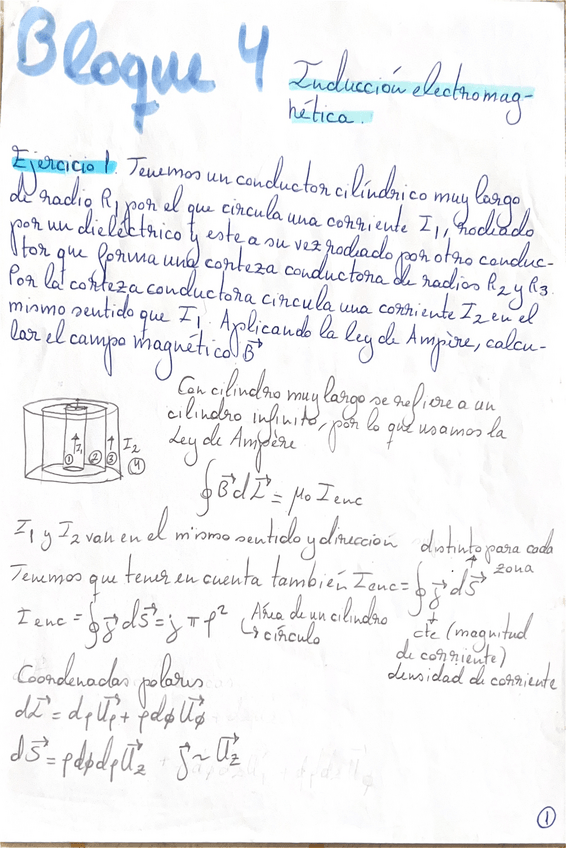 Bloque 4
Inducción electromag-
nética.
Ejercicio 1. Tenemos un conductor cilíndrico muy largo,
de radio R₁ por el que circula una corriente I₁, rodeado
por un dieléctrico y este a su vez rodeado por otro conduc-
tor que forma una corteza conductora de radios R₂ y R₃.
Por la corteza conductora circula una corriente I₂ en el
mismo sentido que I₁. Aplicando la ley de Ampère, calcu-
lar el campo magnético B⃗
Con cilindro muy largo se refiere a un
cilindro infinito, por lo que usamos la
Ley de Ampère.
① I₁ ② ③ I₂
④
∮B⃗ dL⃗ = μ₀ Ienc
I₁ y I₂ van en el mismo sentido y dirección
distinto para cada
zona
Tenemos que tener en cuenta también Ienc = ∮ j⃗ dS⃗
Ienc = ∮ j⃗ dS⃗ = j π ρ²
Área de un cilindro
↳ círculo
cte (magnitud
de corriente)
densidad de corriente
Coordenadas polares
dL⃗ = dρ U⃗ρ + ρdϕ U⃗ϕ
dS⃗ = ρdϕdρ U⃗z j⃗ ~ U⃗z
①